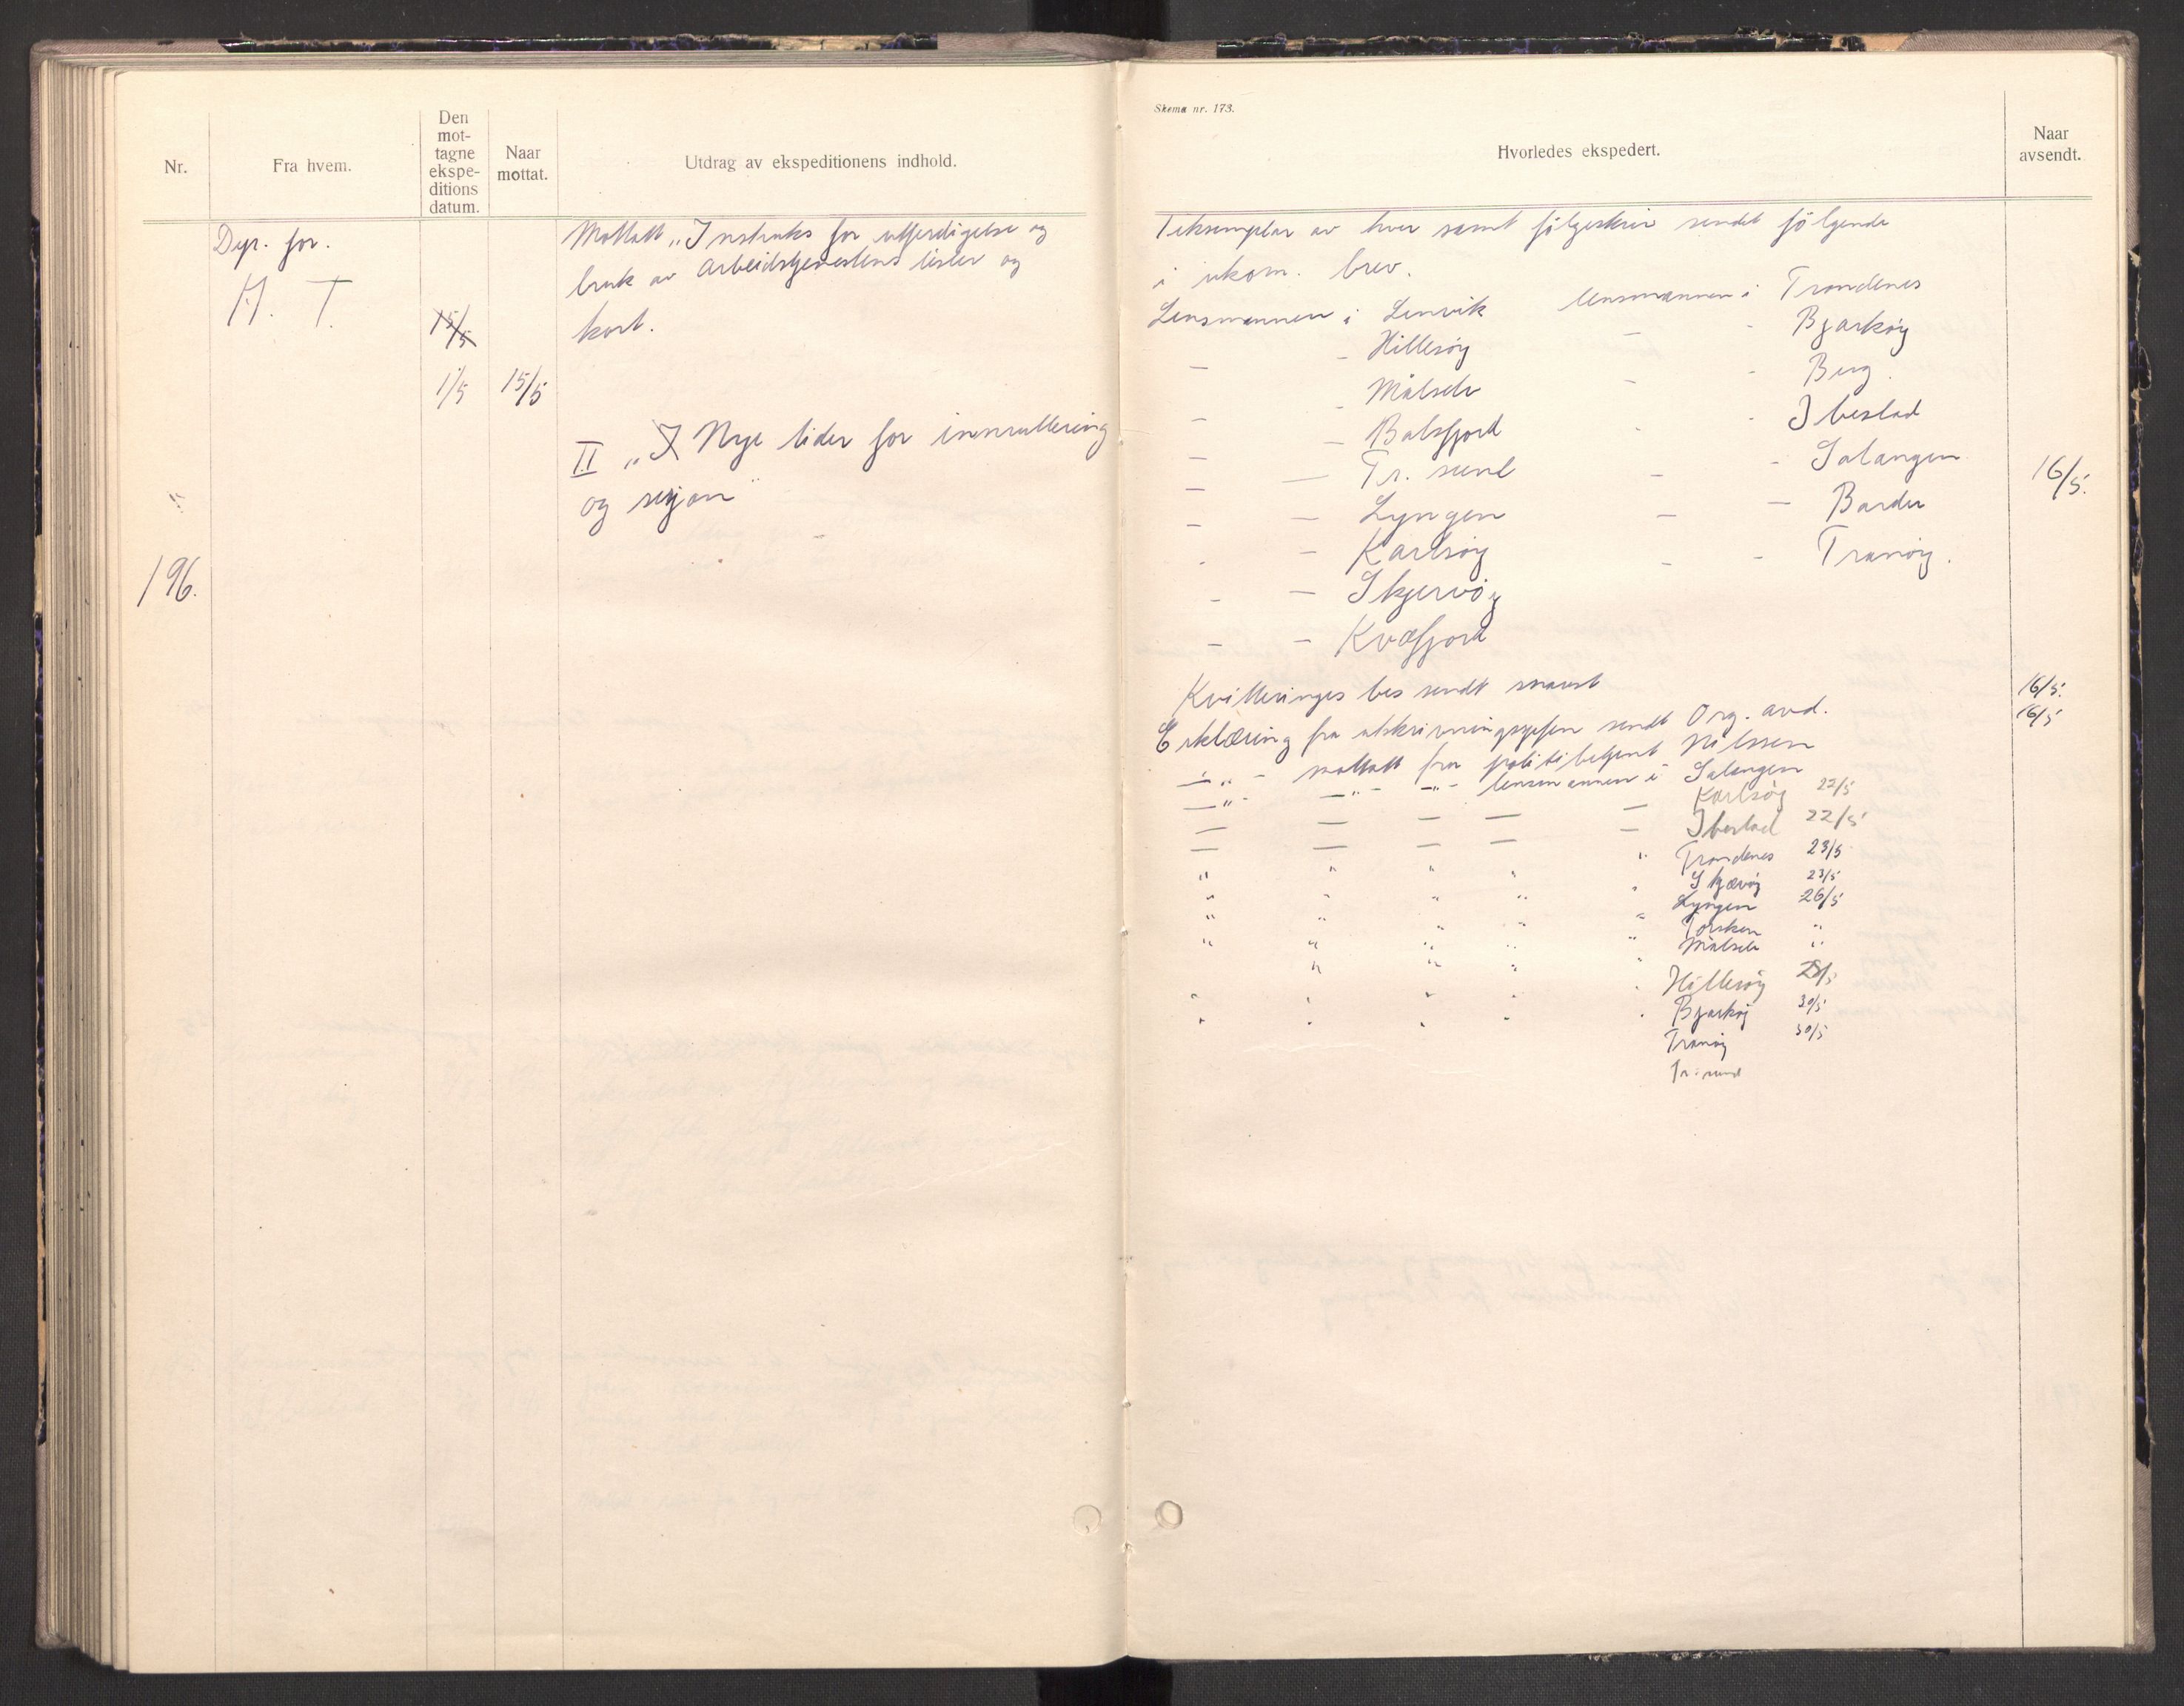 Nr.
Fra hvem.
Den
mot-
tagne
ekspe-
ditions
datum.
Naar
mottat.
Utdrag av ekspeditionens indhold.
196.
Dep. for.
A. T.
15/5
1/5
15/5
Mottatt „Instruks for utferdigelse og
bruk av Arbeidstjenestens lister og
kort.
II „I Nye tider for innrullering
og sesjon"
Skema nr. 173.
Hvorledes ekspedert.
Naar
avsendt.
1 eksemplar av hver samt følgeskriv sendt følgende
i rekom. brev.
Lensmannen i Lenvik lensmannen i Trondenes
- - Hillesøy - - Bjarkøy
- - Målselv - - Berg.
- - Balsfjord - - Ibestad
- - Tr. sund - - Salangen
- - Lyngen - - Bardu
- - Karlsøy - - Tranøy.
- - Skjervøy
- - Kvæfjord
16/5.
Kvitteringes bes sendt snarest 16/5.
Erklæring fra utskrivningssjefen sendt Org. avd. 16/5
- „ - mottatt fra politibetjent Nilssen
- „ - - „ - - „ - lensmannen i Salangen
- - - - - Karlsøy 22/5
- - - - - Ibestad 22/5
" " " " " Trondenes 23/5
" " " " " Skjærvøy 23/5
" " " " " Lyngen 26/5
Torsken "
" " " " " Målselv "
" " " " Hillesøy
" " " " " Bjarkøy 30/5
" " " " " Tranøy 30/5
Tr. sund